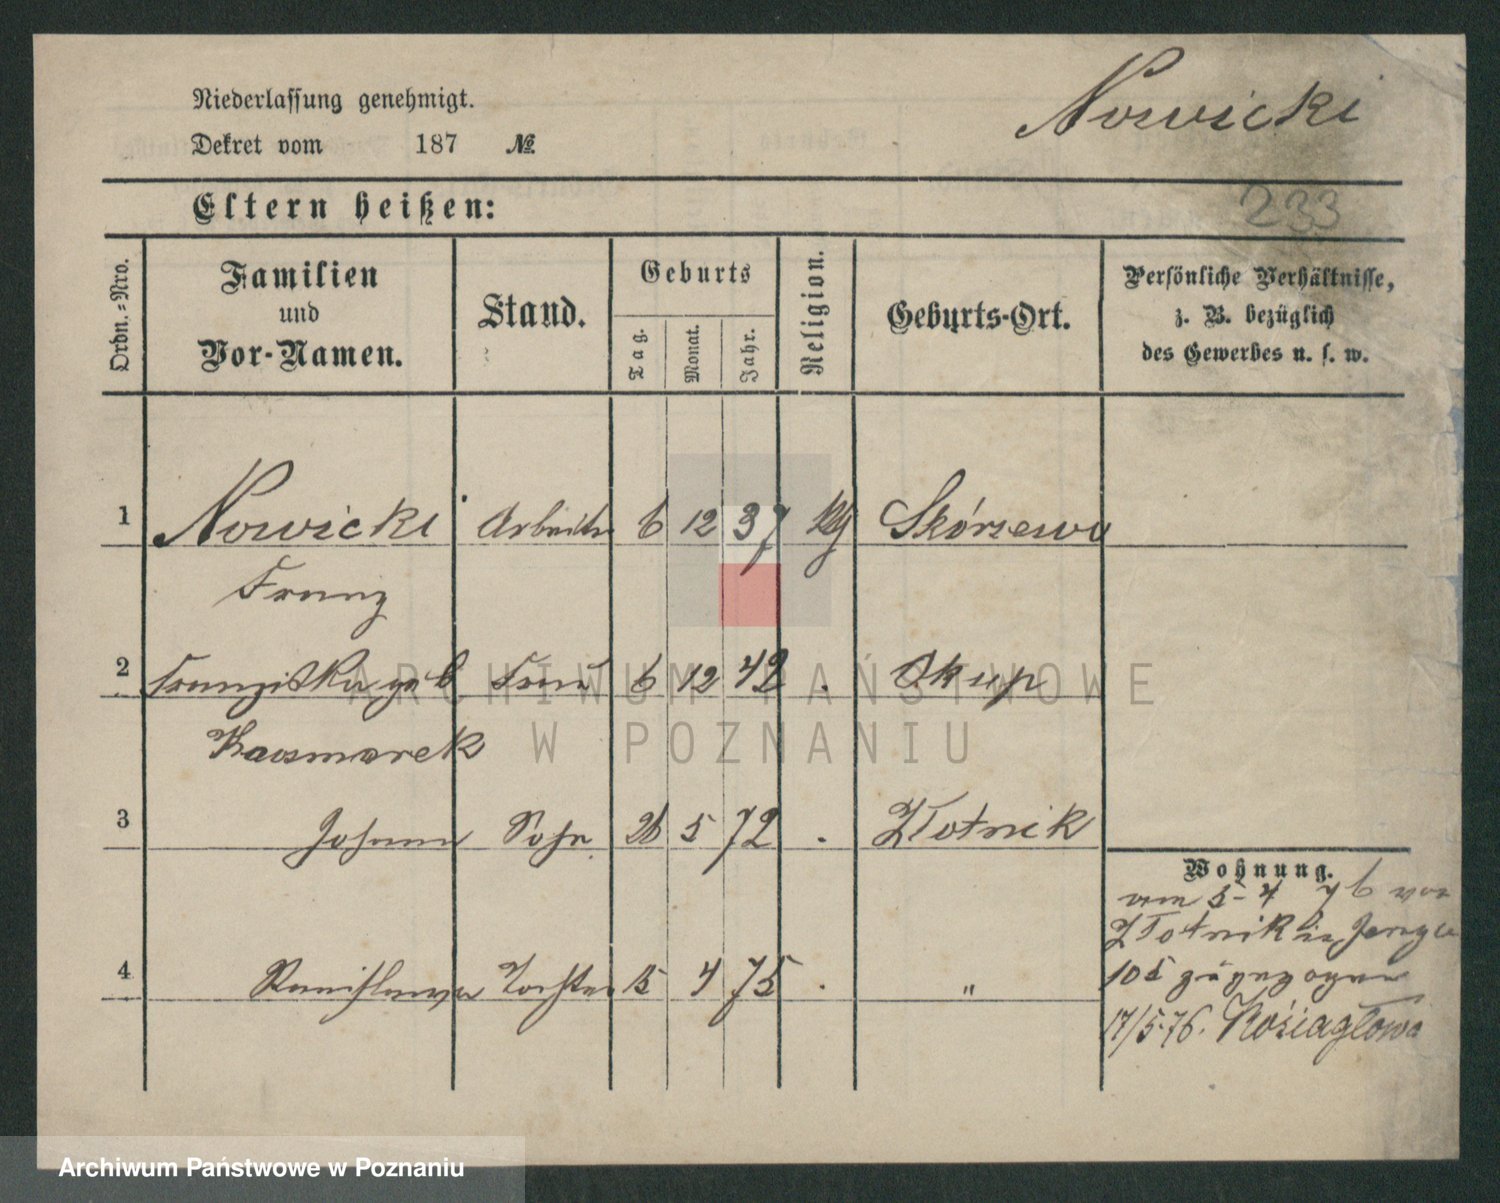 Niederlassung genehmigt.
Nowicki
Dekret vom 187 №
Eltern heißen:
233
Ordn.-Nro.
Familien
und
Vor-Namen.
Stand.
Geburts
Tag.
Monat.
Jahr.
Religion.
Geburts-Ort.
Persönliche Verhältnisse,
z. B. bezüglich
des Gewerbes u. s. w.
1 Nowicki Arbeiter 6 12 37 Skórzewo
Franz
2 Franziska geb Frau 6 12 42 . Okup
Kaosmarek
3 Johann Sohn 26 5 72 . Złotnik
4 Stanislawa Tochter 15 4 75 . "
Wohnung.
vom 5-4 76 von
Złotnik in
105 zugezogen
17/5.76. Koźiagłowa
ARCHIWUM PAŃSTWOWE
W POZNANIU
Archiwum Państwowe w Poznaniu